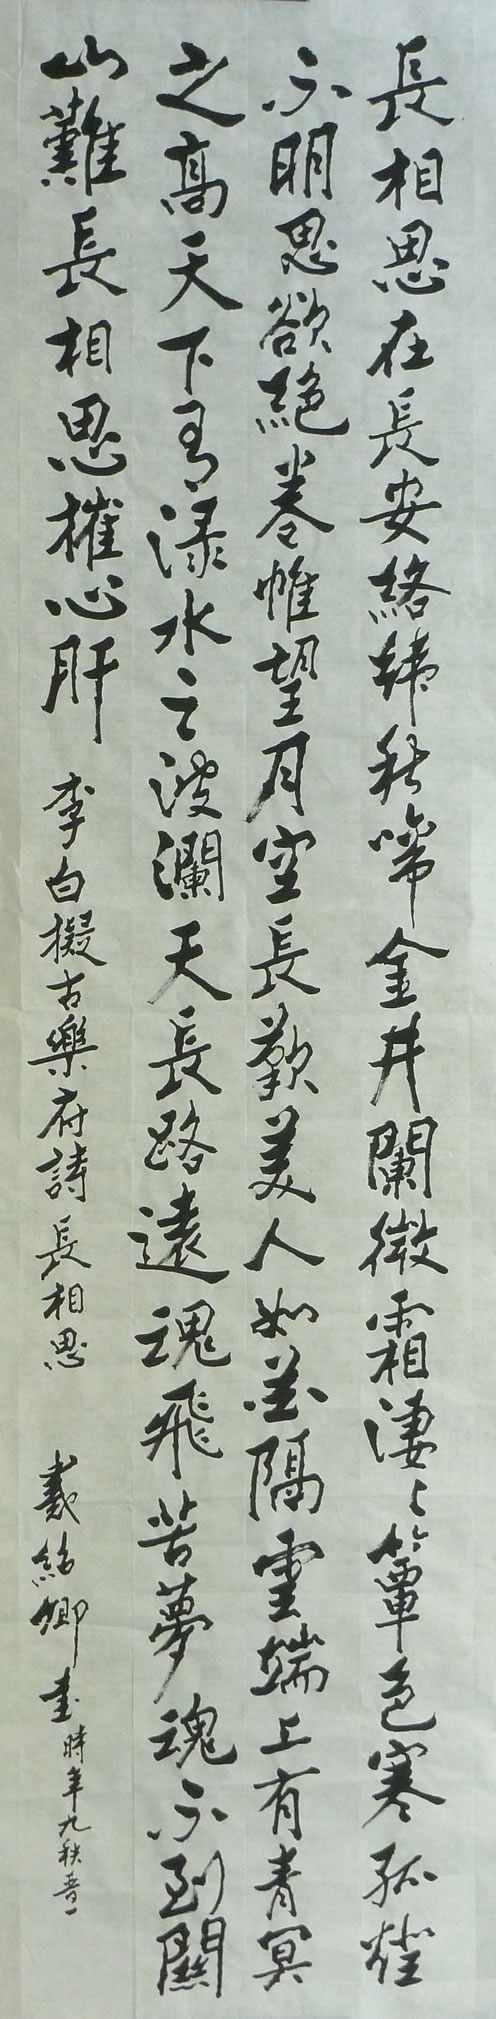 長相思在長安絡緯秋啼金井闌微霜淒〻簟色寒孤燈
不明思欲絕卷帷望月空長歎美人如花隔雲端上有青冥
之高天下有淥水之波瀾天長路遠魂飛苦夢魂不到關
山難長相思摧心肝 李白擬古樂府詩長相思 戴紹卿書時年九秩晉一